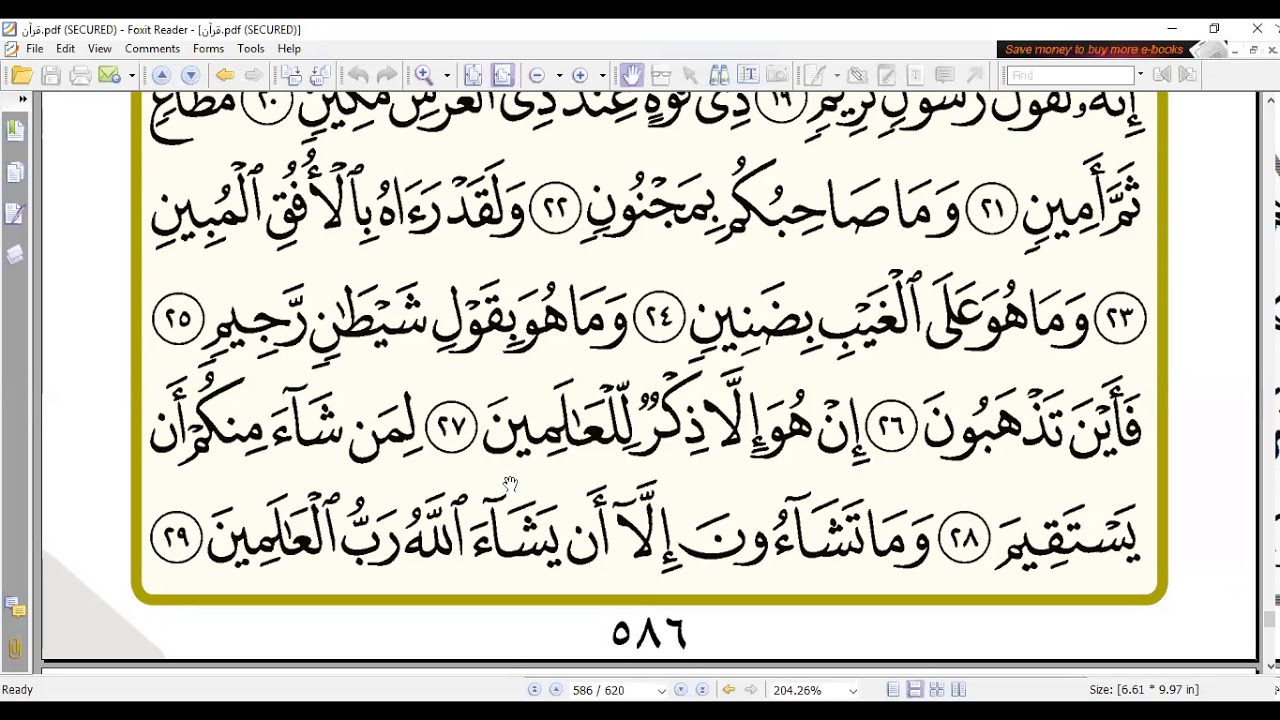 قرآن.pdf (SECURED) - Foxit Reader - [قرآن.pdf (SECURED)]
File Edit View Comments Forms Tools Help
Save money to buy more e-books
Find
إِنَّهُۥ لَقَوْلُ رَسُولٍ كَرِيمٍ ١٩ ذِى قُوَّةٍ عِندَ ذِى ٱلْعَرْشِ مَكِينٍ ٢٠ مُّطَاعٍ
ثَمَّ أَمِينٍ ٢١ وَمَا صَاحِبُكُم بِمَجْنُونٍ ٢٢ وَلَقَدْ رَءَاهُ بِٱلْأُفُقِ ٱلْمُبِينِ
٢٣ وَمَا هُوَ عَلَى ٱلْغَيْبِ بِضَنِينٍ ٢٤ وَمَا هُوَ بِقَوْلِ شَيْطَٰنٍ رَّجِيمٍ ٢٥
فَأَيْنَ تَذْهَبُونَ ٢٦ إِنْ هُوَ إِلَّا ذِكْرٌ لِّلْعَٰلَمِينَ ٢٧ لِمَن شَآءَ مِنكُمْ أَن
يَسْتَقِيمَ ٢٨ وَمَا تَشَآءُونَ إِلَّآ أَن يَشَآءَ ٱللَّهُ رَبُّ ٱلْعَٰلَمِينَ ٢٩
٥٨٦
Ready 586 / 620 204.26% Size: [6.61 * 9.97 in]